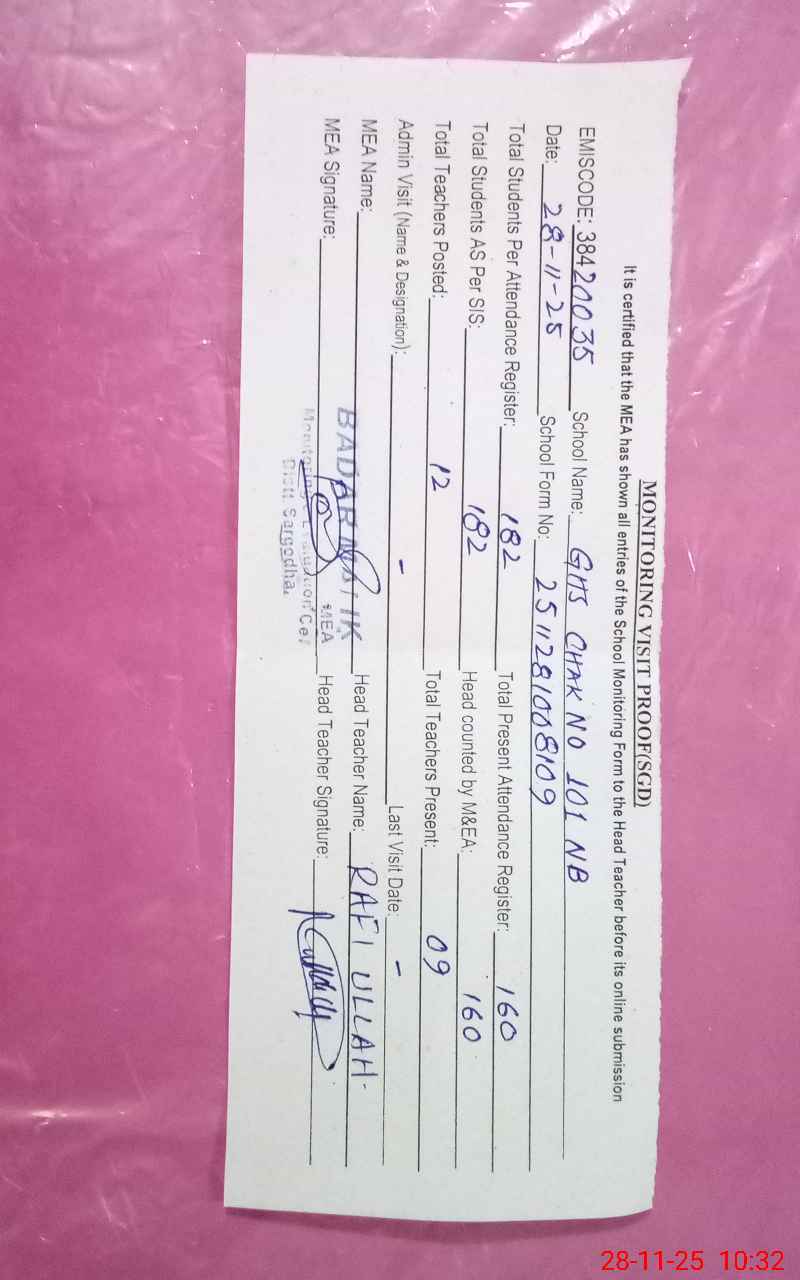 MONITORING VISIT PROOF(SGD)
It is certified that the MEA has shown all entries of the School Monitoring Form to the Head Teacher before its online submission
EMISCODE: 38420035 School Name: GHS CHAK NO 101 NB
Date: 28-11-25 School Form No: 2511281008109
Total Students Per Attendance Register: 182 Total Present Attendance Register: 160
Total Students AS Per SIS: 182 Head counted by M&EA: 160
Total Teachers Posted: 12 Total Teachers Present: 09
Admin Visit (Name & Designation): - Last Visit Date: -
MEA Name: BADAR Head Teacher Name: RAFI ULLAH-
MEA Signature: MEA Head Teacher Signature:
Distt Sargodha.
28-11-25 10:32